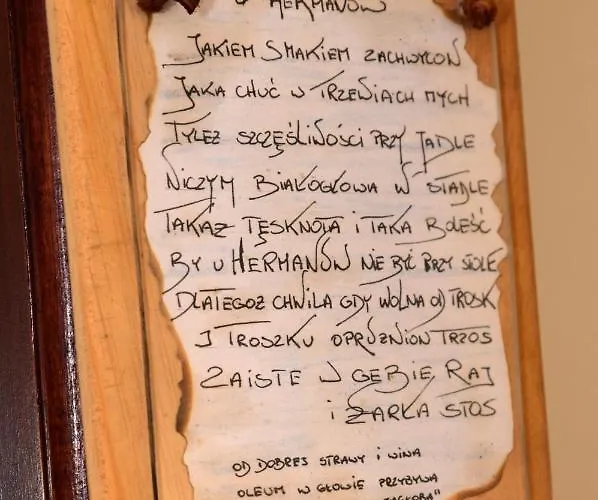 U HERMANÓW
JAKIEM SMAKIEM ZACHWYCON
JAKA CHUĆ W TRZEWIACH MYCH
TYLEŻ SZCZĘŚLIWOŚCI PRZY JADLE
NICZYM BIAŁOGŁOWA W STADLE
TAKAŻ TĘSKNOTA I TAKA BOLEŚĆ
BY U HERMANÓW NIE BYĆ PRZY STOLE
DLATEGOŻ CHWILA GDY WOLNA OD TROSK
I TROSZKU OPRÓŻNION TRZOS
ZAISTE W GĘBIE RAJ
I ŻARŁA STOS
OD DOBREJ STRAWY I WINA
OLEUM W GŁOWIE PRZYBYWA
ZAGŁOBA"